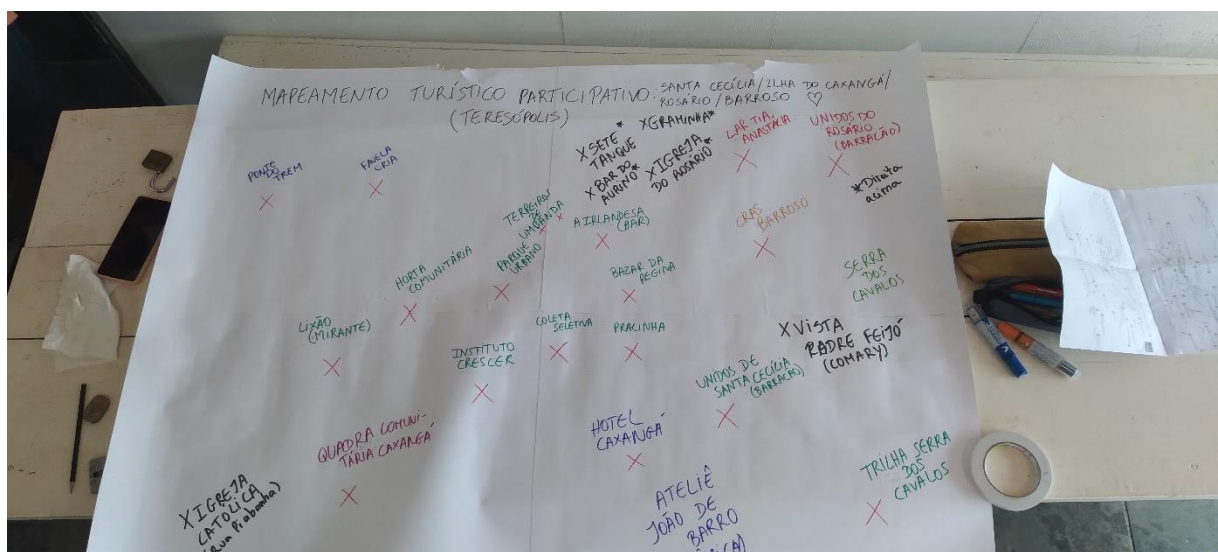 MAPEAMENTO TURÍSTICO PARTICIPATIVO: SANTA CECÍLIA/ILHA DO CAXANGÁ/
ROSÁRIO/BARROSO ♡
(TERESÓPOLIS)
PONTE
DO TREM
X
FAVELA
CRIA
X
X SETE *
TANQUE
X BAR DO
AURINO*
XGRAMINHA*
XIGREJA
DO ROSÁRIO*
LAR TIA
ANASTÁCIA
X
UNIDOS DO
ROSÁRIO
(BARRACÃO)
X
*Direita
acima
TERREIROS
DE
UMBANDA
X X
A IRLANDESA
(BAR)
X
CRAS
BARROSO
X
HORTA
COMUNITÁRIA
X
PARQUE
URBANO
X
BAZAR DA
REGINA
X
SERRA
DOS
CAVALOS
LIXÃO
(MIRANTE)
X
INSTITUTO
CRESCER
X
COLETA
SELETIVA
X
PRACINHA
X
X VISTA
PADRE FEIJÓ
(COMARY)
UNIDOS DE
SANTA CECÍLIA
(BARRACÃO)
X
QUADRA COMUNI-
TÁRIA CAXANGÁ
X
HOTEL
CAXANGÁ
X
TRILHA SERRA
DOS
CAVALOS
X
XIGREJA
CATOLICA
(rua Piabanha)
ATELIÊ
JOÃO DE
BARRO